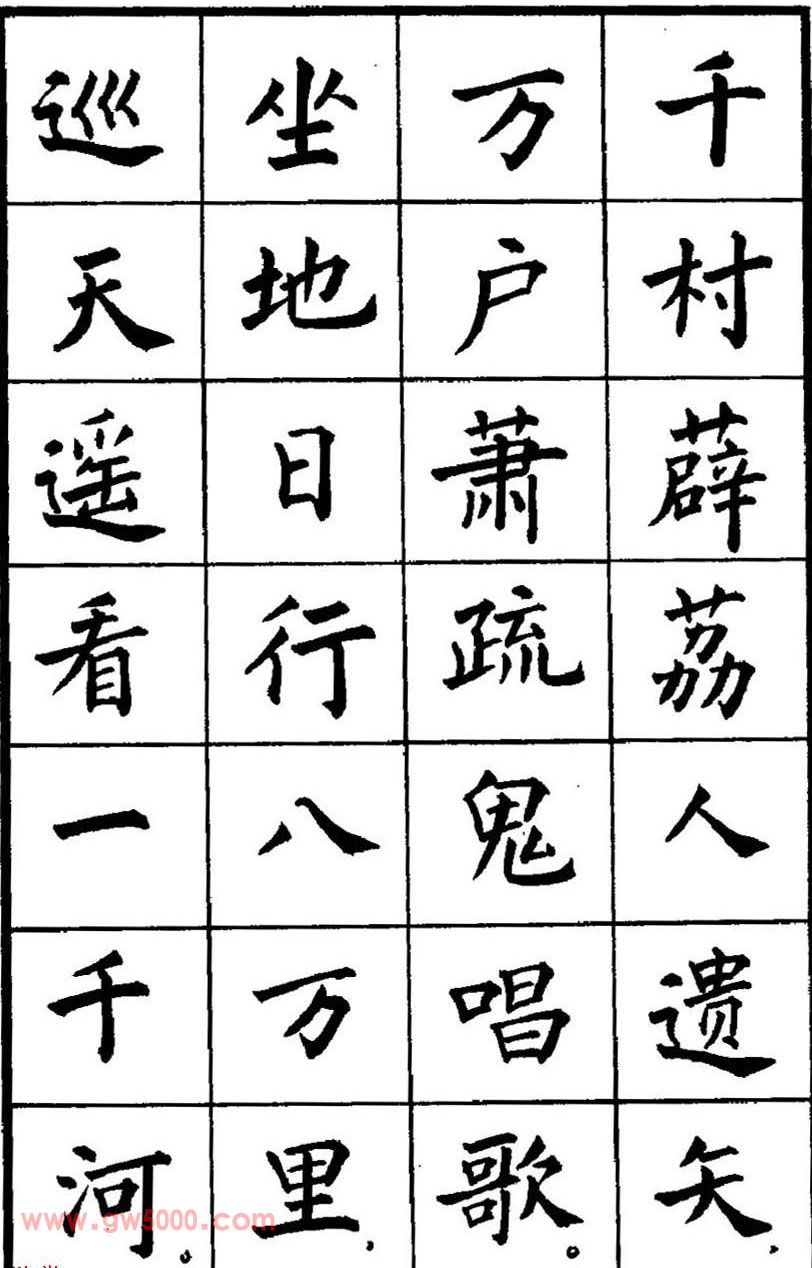 千村薜荔人遗矢，
万户萧疏鬼唱歌。
坐地日行八万里，
巡天遥看一千河。
www.gw5000.com